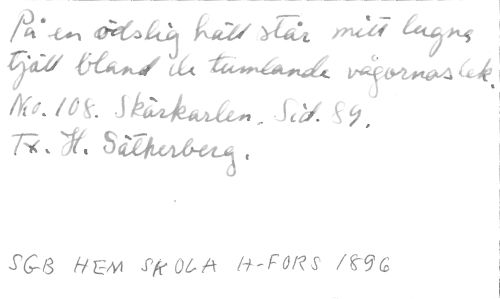 På en ödslig häll står mitt lugna
tjäll bland de tumlande vågornas lek.
No. 108. Skärkarlen. Sid. 89.
Tx. H. Sätherberg.
SGB HEM SKOLA H-FORS 1896